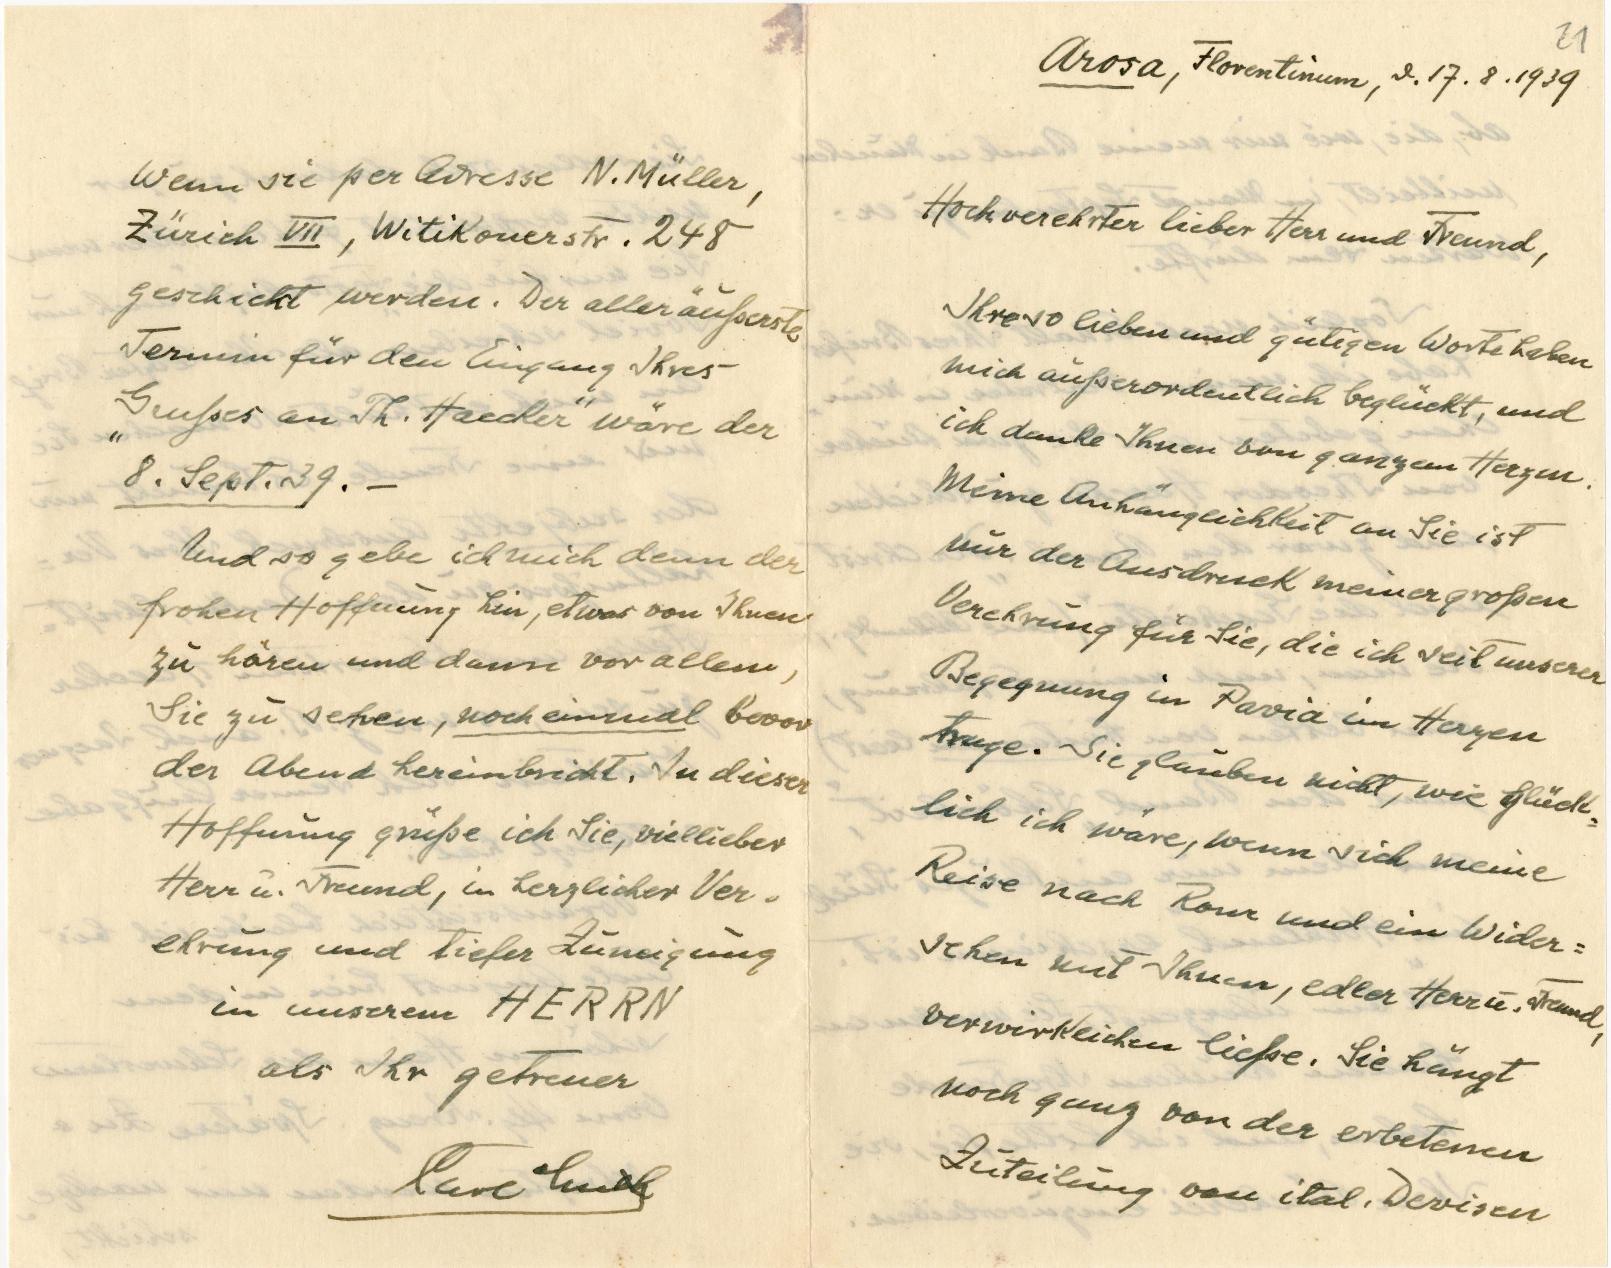 21
Arosa, Florentinum, d. 17. 8. 1939
Hochverehrter lieber Herr und Freund,
Ihre so lieben und gütigen Worte haben
mich außerordentlich beglückt, und
ich danke Ihnen von ganzem Herzen.
Meine Anhänglichkeit an Sie ist
nur der Ausdruck meiner großen
Verehrung für Sie, die ich seit unserer
Begegnung in Pavia im Herzen
trage. Sie glauben nicht, wie glück=
lich ich wäre, wenn sich meine
Reise nach Rom und ein Wider=
sehen mit Ihnen, edler Herr u. Freund,
verwirklichen ließe. Sie hängt
noch ganz von der erbetenen
Zuteilung von ital. Devisen
Wenn sie per Adresse N. Müller,
Zürich VII, Witikonerstr. 248
geschickt werden. Der alleräußerste
Termin für den Eingang Ihres
„Grußes an Th. Haecker" wäre der
8. Sept. 39. —
Und so gebe ich mich denn der
frohen Hoffnung hin, etwas von Ihnen
zu hören und dann vor allem,
Sie zu sehen, noch einmal bevor
der Abend hereinbricht. In dieser
Hoffnung grüße ich Sie, viellieber
Herr u. Freund, in herzlicher Ver-
ehrung und tiefer Zuneigung
in unserem HERRN
als Ihr getreuer
Carl Muth